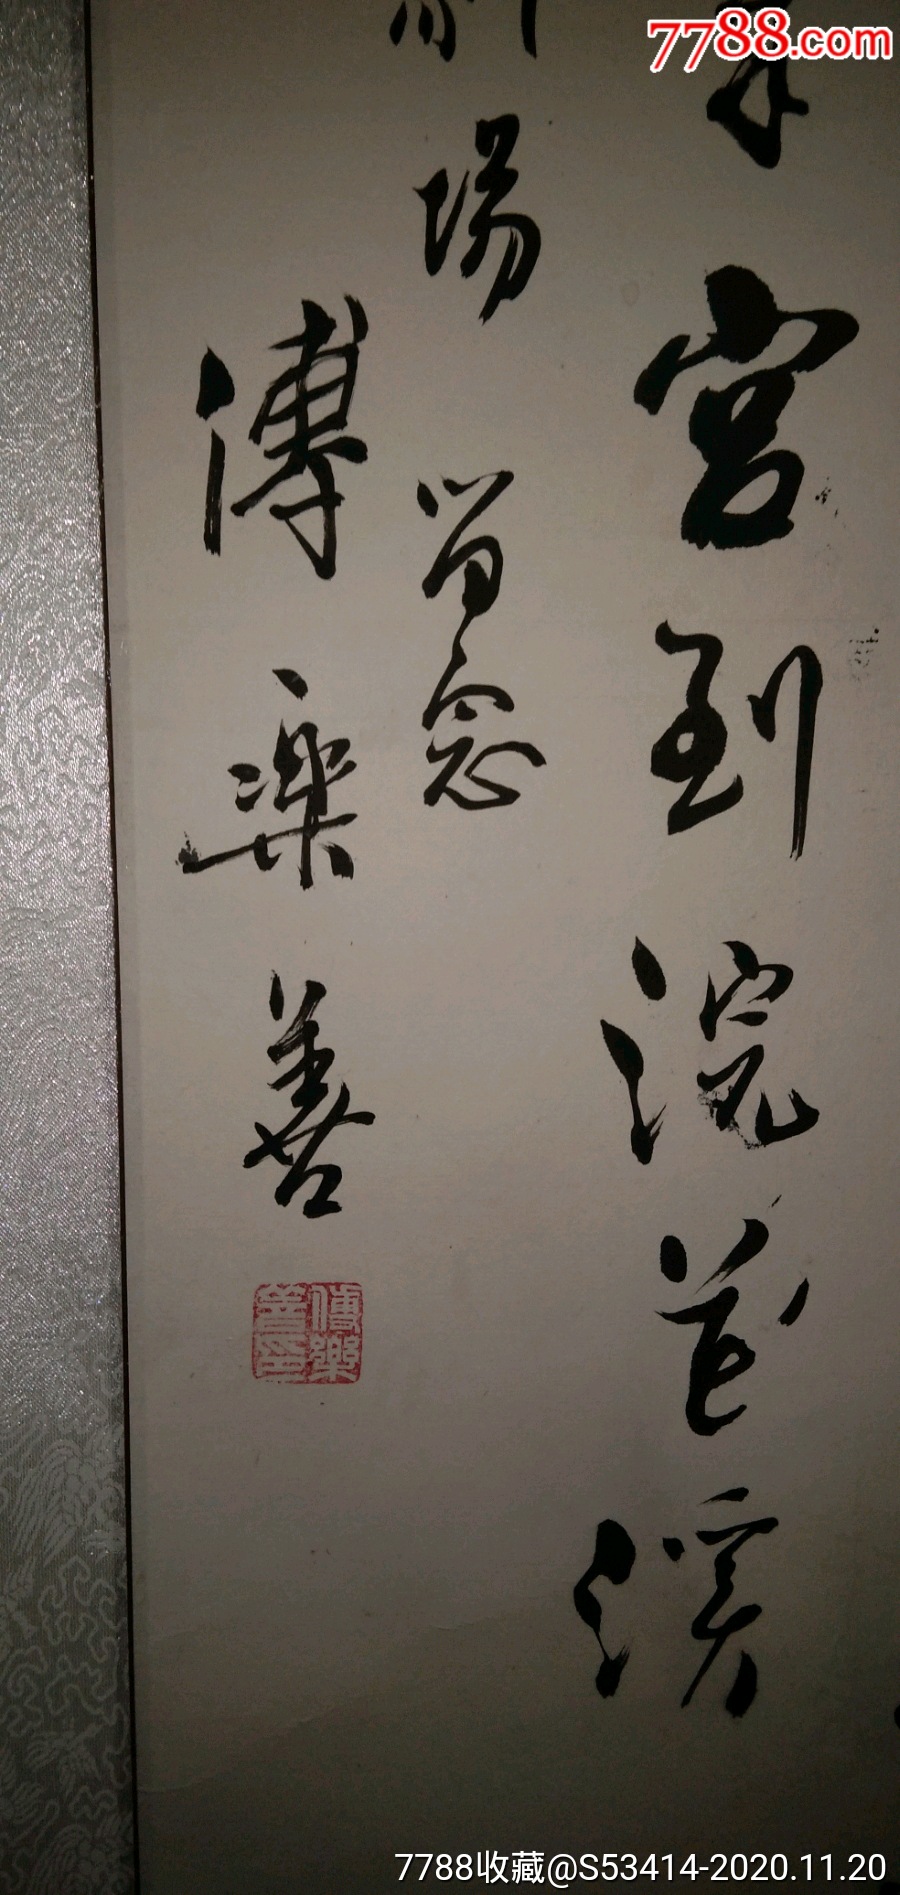 7788.com
宫到浣花溪
場留念
傅樂善
傅樂善印
7788收藏@S53414-2020.11.20